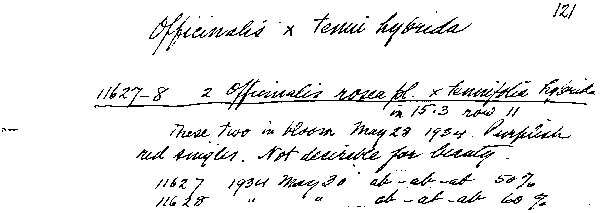 121
Officinalis x tenui hybrida
11627-8 2 Officinalis rosea pl. x tenuifolia hybrida
in 15.3 row 11
These two in bloom May 28 1934. Purplish
red singles. Not desirable for beauty.
11627 1934 May 30 ab-ab-ab 50%
11628 " " ab-ab-ab 60%